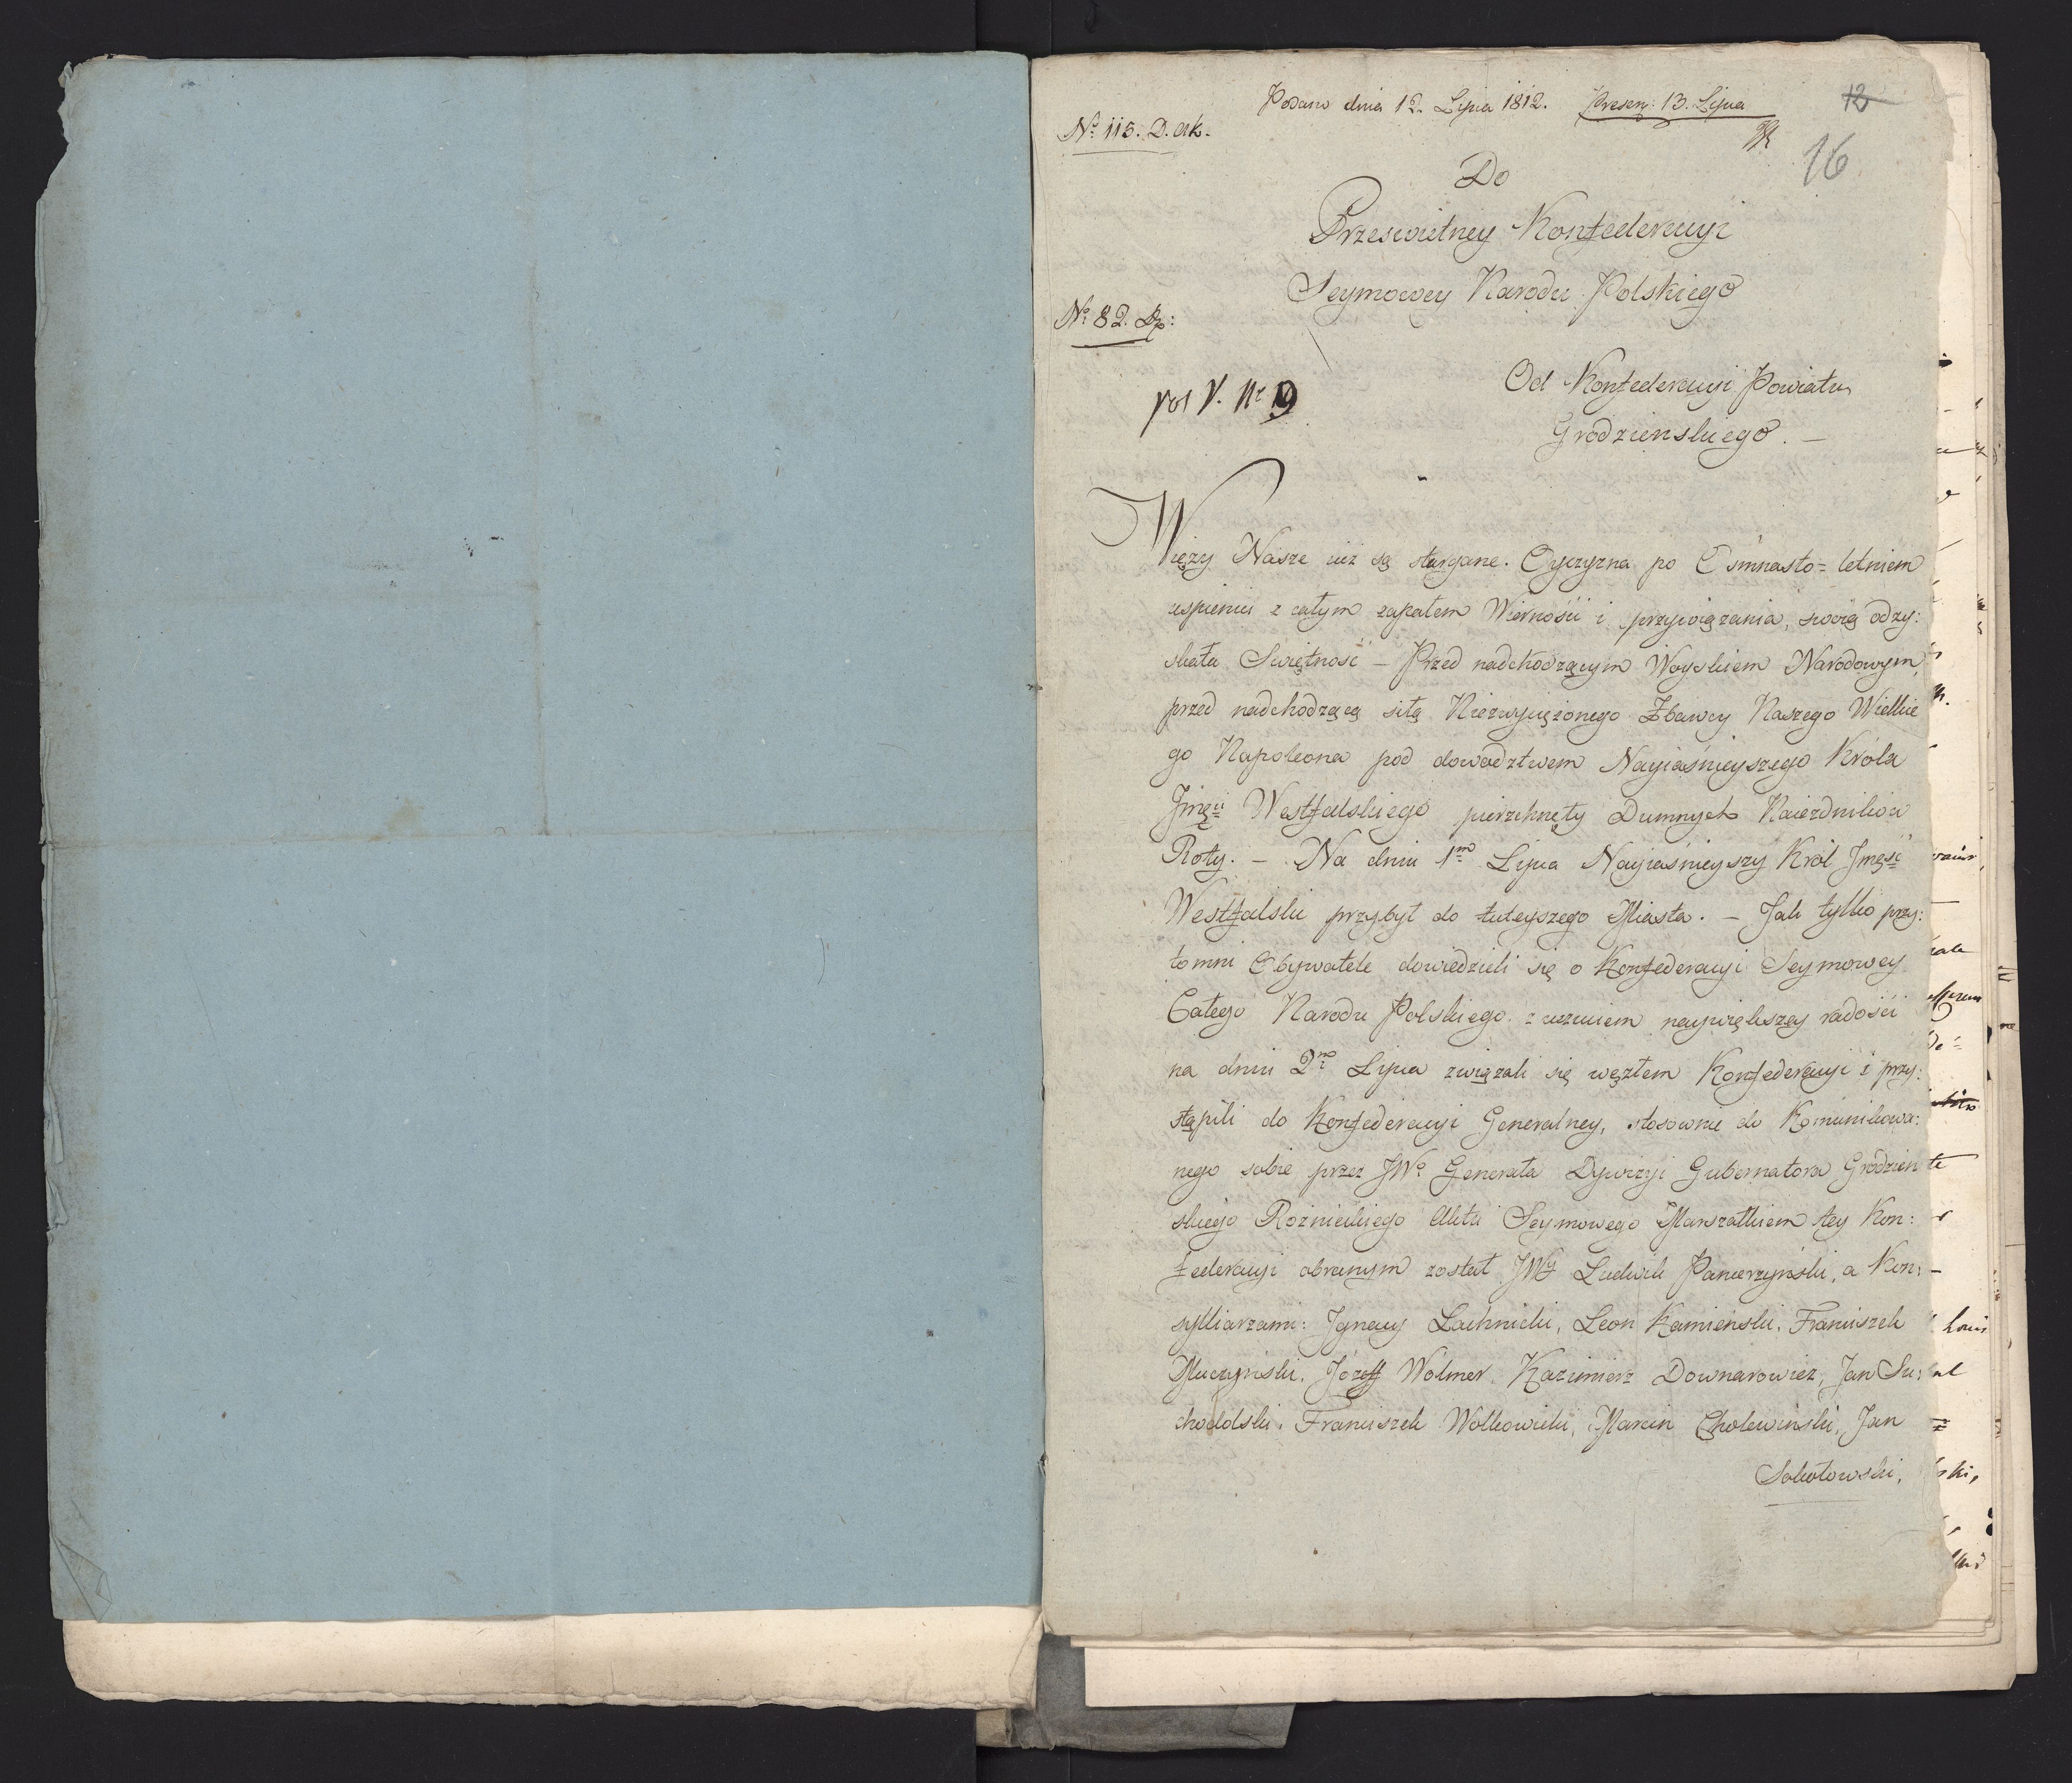 Podano dnia 12. Lipca 1812. Presen: 13. Lipca
12
No 115. D. Ak.
16
Do
Przeswietney Konfederacyi
Seymowey Narodu Polskiego
No 82. Dp:
Vol V. Nr 9
Od Konfederacyi Powiatu
Grodzienskiego. —
Więzy Nasze iuż są stargane. Oyczyzna po Osimnasto= letniem
uspieniu z całym zapałem Wiernośći i przywiązania, swoią odzy:
skała Swiętność — Przed nadchodzącym Woyskiem Narodowym,
przed nadchodzącą siłą Niezwyciężonego Zbawcy Naszego Wielkie
go Napoleona pod dowodztwem Nayiaśnieyszego Króla
Jmęci Westfalskiego pierzchnęły Dumnych Naiezdnikow
Roty. — Na dniu 1mo Lipca Nayiaśnieyszy Król Jmęść
Westfalski przybył do tuteyszego Miasta. — Jak tylko przy:
tomni Obywatele dowiedzieli się o Konfederacyi Seymowey
Całego Narodu Polskiego z uczuciem naywiększey radośći
na dniu 2do Lipca związali się węzłem Konfederacyi i przy:
stąpili do Konfederacyi Generalney, stosownie do Kommunikowa:
nego sobie przez JWo Generała Dywizyi Gubernatora Grodzien
skiego Rożnieckiego Aktu Seymowego Marszałkiem tey Kon:
federacyi obranym został JWy Ludwik Pancerzyński, a Kon:
sylliarzami: Ignacy Lachnicki, Leon Kamieński, Franciszek
Muczyński, Józeff Wolmer, Kazimierz Downarowicz, Jan Su:
chodolski, Franciszek Wolkowicki, Marcin Cholewiński, Jan
Sokołowski,